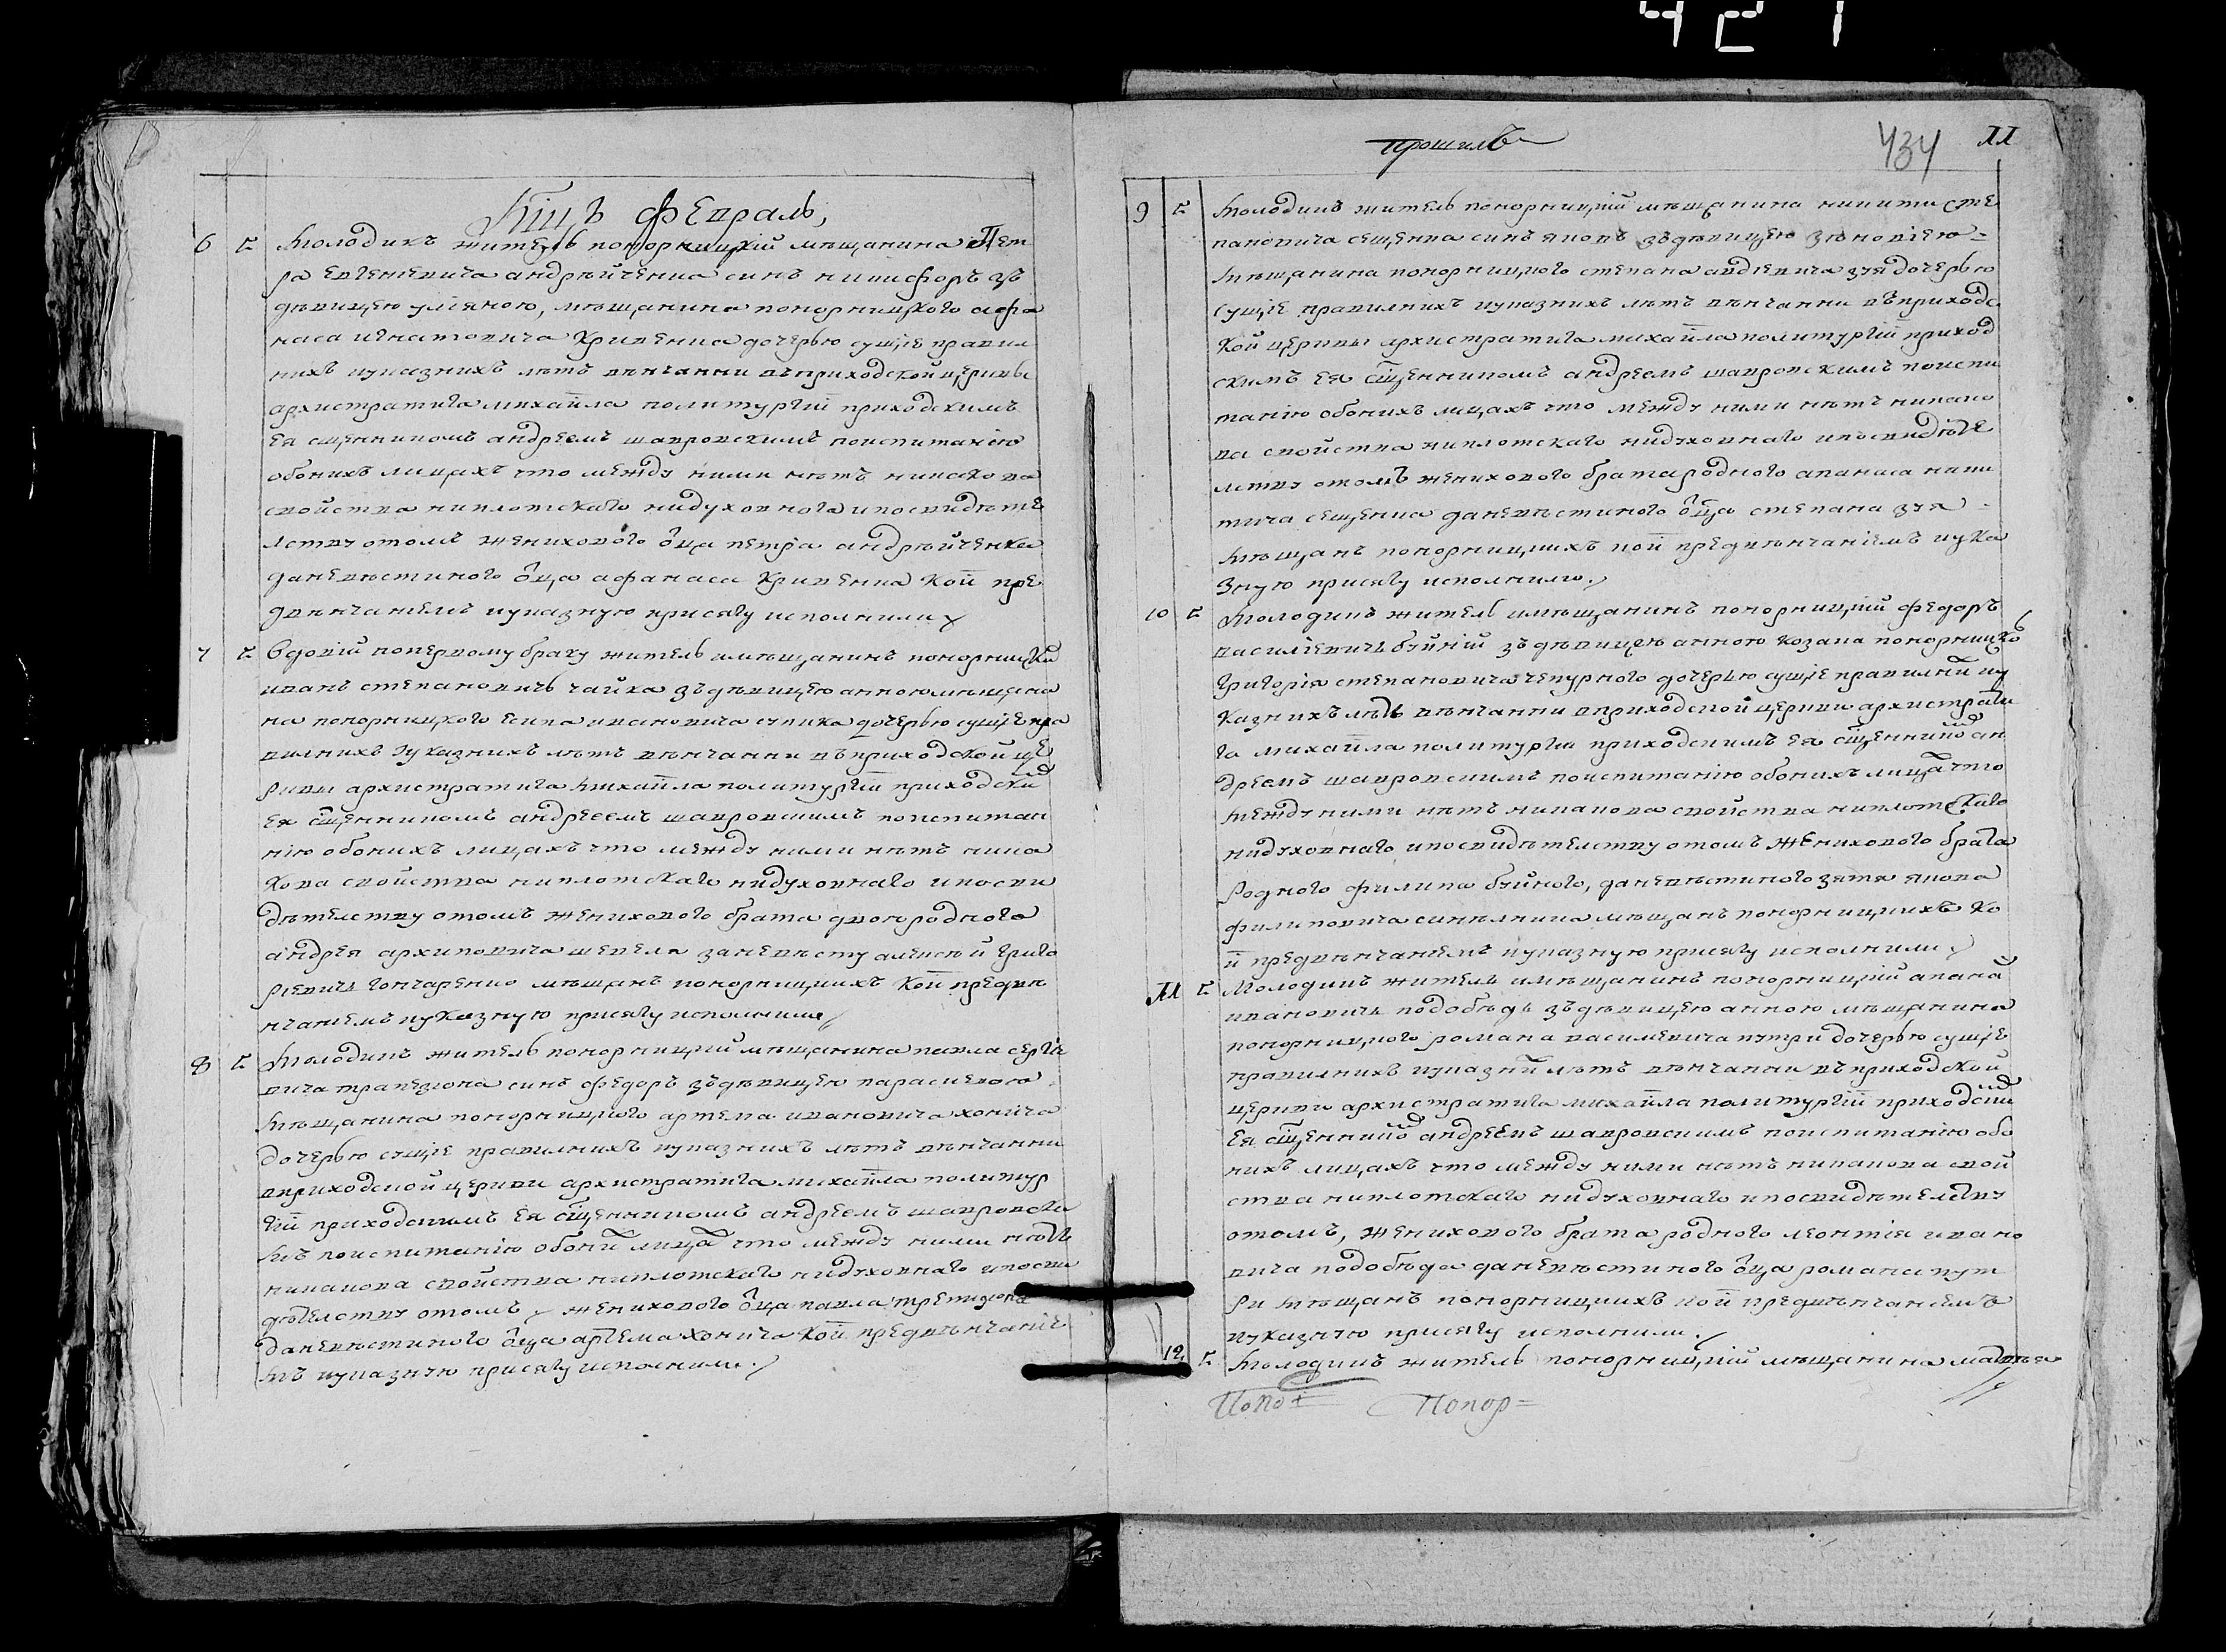 421
Мцъ февраль,
6 5 Молодикъ житель понорницкій мѣщанина Пет
ра евгеневича андрѣйченка синъ никифоръ зъ
дѣвицею уляною, мѣщанина понорницкого афа
наса игнатовича Кривенка дочерью сущіе правил
нихъ иуказнихъ лѣтъ вѣнчанни въприходской церквѣ
архистратига михаила политургіи приходскимъ
ея сщенникомъ андреемъ шавровскимъ поиспитанію
обоихъ лицахъ что между ними нѣтъ никакова
свойства ниплотскаго нидуховнаго ипосвидѣте
лству отомъ женихового оца петра андрѣйченка
даневѣстиного оца афанаса Кривенка кои пре
двѣнчаніемъ иуказную присягу исполнили
7 5 Вдовій поперво­му браку житель имѣщанинъ понорницкій
иванъ степановичъ чайка зъдѣвицею анною мѣщани
на понорницкого есипа ивановича дочерью сущіе пра
вилнихъ иуказнихъ лѣтъ вѣнчанни въприходской це
ркви архистратига михаила политургіи приходски
ея сщенникомъ андреемъ шавровскимъ поиспитан
нію обоихъ лицахъ что между ними нѣтъ ника
кова свойства ниплотскаго нидуховнаго ипосви
дѣтелству отомъ женихового брата двоюродного
андрея архиповича шевеля заневѣсту алексѣй григо
ріевичъ гончаренко мѣщанъ понорницкихъ кои предвѣ
нчаніемъ иуказную присягу исполнили
8 5 Молодикъ житель понорницкій мѣщанина павла сергіе
вича синъ федоръ зъдѣвицею параскевою
мѣщанина понорницкого артема ивановича хонича
дочерью сущіе правилнихъ иуказнихъ лѣтъ вѣнчанни
вприходской церкви архистратига михаила политур
гіи приходскимъ ея сщенникомъ андреемъ шавровски
мъ поиспитанію обои лица что между ними нѣтъ
никакова свойства ниплотскаго нидуховнаго ипосви
дѣтелству отомъ женихового оца павла
даневѣстиного оца артема хонича кои предвѣнчаніе
мъ иуказную присягу исполнили.
прошилъ
434 11
9 5 Молодикъ житель понорницкій мѣщанина никити сте
пановича сещенка синъ яковъ зъдѣвицею зѣновіею
мѣщанина понорницкого степана авдіевича зуя дочерью
сущіе правилнихъ иуказнихъ лѣтъ вѣнчанни въприходс
кой церкви архистратига михаила политургіи приход
скимъ ея сщенникомъ андреемъ шавровскимъ поиспи
танію обоихъ лицахъ что между ними нѣтъ никако
ва свойства ниплотскаго нидуховнаго ипосвидѣте
лству отомъ женихового брата родного апанаса ники
тича сещенка даневѣстиного оца степана зуя
мѣщанъ понорницкихъ кои предвѣнчаніемъ иука
зную присягу исполнили.
10 5 Молодикъ житель имѣщанинъ понорницкій федоръ
василіевичъ буйній зъ дѣвицею анною козака понорницко
григорія степановича чепурного дочерью сущіе правилни иу
казнихъ лѣтъ вѣнчанни вприходской церкви архистрати
га михаила политургіи приходскимъ ея сщеннико ан
дреемъ шавровскимъ поиспитанію обоихъ лица что
между ними нѣтъ никакова свойства ниплотскаго
нидуховнаго ипосвидѣтелству отомъ женихового брата
родного филипа буйного, даневѣстиного зятя якова
филиповича синялника мѣщанъ понорницкихъ ко
и предвѣнчаніемъ иуказную присягу исполнили
11 5 Молодикъ житель имѣщанинъ понорницкій апана
ивановичъ подобѣдъ зъдѣвицею анною мѣщанина
понорницкого романа василіевича путри дочерью сущіе
правилнихъ иуказни лѣтъ вѣнчанни въприходской
церкви архистратига михаила политургіи приходски
ея сщеннико андреемъ шавровскимъ поиспитанію обо
ихъ лицахъ что между ними нѣтъ никакова свой
ства ниплотскаго нидуховнаго ипосвидѣтелству
отомъ, женихового брата родного леонтія ивано
вича подобѣда даневѣстиного оца романа пут
ри мѣщанъ понорницкихъ кои предвѣнчаніемъ
иуказную присягу исполнили.
12 5 Молодикъ житель понорницкій мѣщанина матвѣя
Попо Понор=